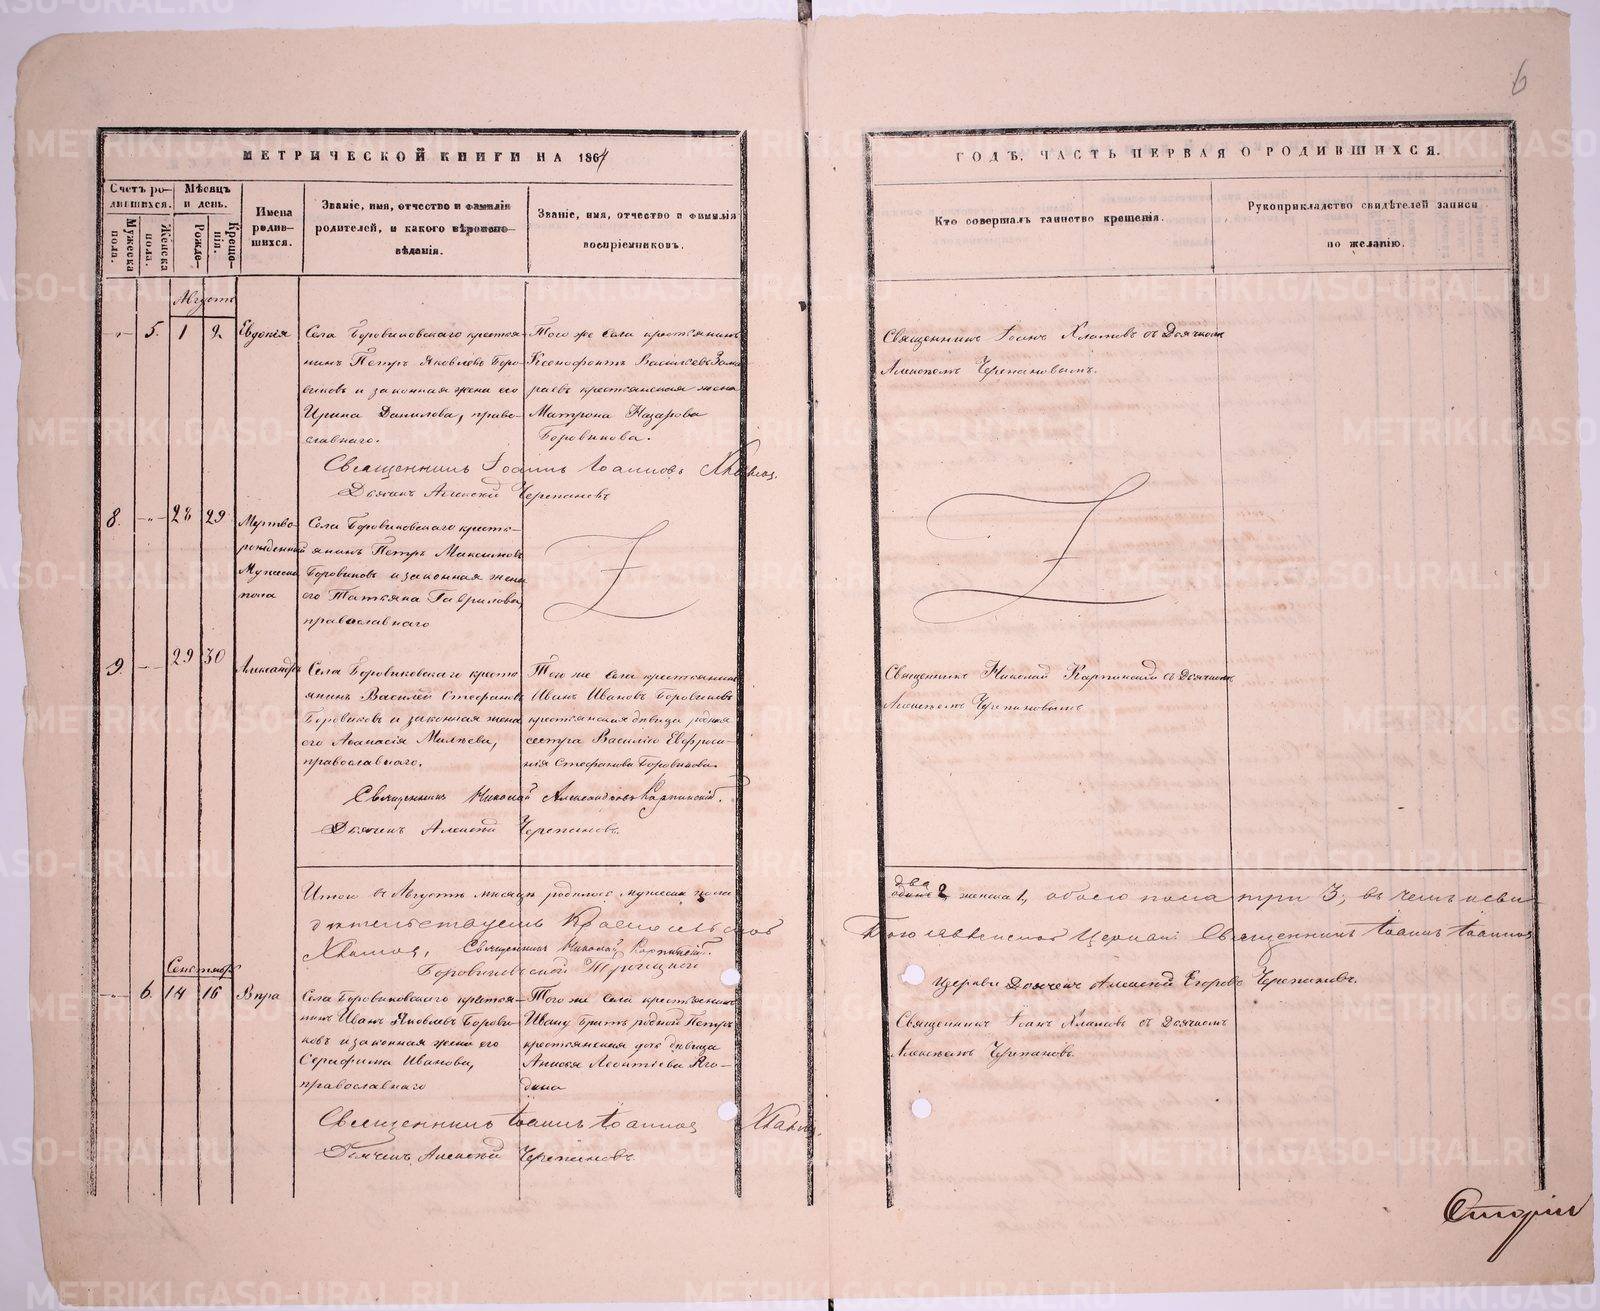 6
МЕТРИЧЕСКОЙ КНИГИ НА 1864
ГОДЪ, ЧАСТЬ ПЕРВАЯ О РОДИВШИХСЯ.
Счетъ ро-
дившихся.
Мужеска
пола.
Женска
пола.
Мѣсяцъ
и день.
Рожде-
Креще-
нія.
Имена
родив-
шихся.
Званіе, имя, отчество и фамилія
родителей, и какого вѣроиспо-
вѣданія.
Званіе, имя, отчество и фамилія
воспріемниковъ.
Кто совершалъ таинство крещенія.
Рукоприкладство свидѣтелей записи
по желанію.
Августъ
5. 1 2. Евдокія
Села Боровиковскаго крестья-
нинъ Петръ Яковлевъ Боро-
виковъ и законная жена его
Ирина Данилова, право-
славнаго.
Того же села крестьянинъ
Ксенофонтъ Васильевъ
крестьянская жена
Матрона Назарова
Боровикова.
Священникъ Іоаннъ Хламовъ съ Дьячкомъ
Алексѣемъ Черепановымъ.
Священникъ Іоаннъ Іоанновъ Хламовъ.
Дьячекъ Алексѣй Черепановъ
8. 28 29 Мертво-
рожденный
Мужеска
пола
Села Боровиковскаго кресть-
янинъ Петръ Максимовъ
Боровиковъ и законная жена
его Татьяна Гаврилова,
православнаго
9. 29 30 Александръ
Села Боровиковскаго кресть-
янинъ Василій Стефановъ
Боровиковъ и законная жена
его Аѳанасія
православнаго.
Того же села крестьянинъ
Иванъ Ивановъ Боровиковъ
крестьянская дѣвица родная
сестра Василію Евфроси-
нія Стефанова Боровикова.
Священникъ Николай Карпинскій съ Дьячкомъ
Алексѣемъ Черепановымъ
Священникъ Николай Александровъ Карпинскій.
Дьячекъ Алексѣй Черепановъ.
Итого въ Августѣ мѣсяцѣ родилось мужеска пола
два
2, женска 1, обоего пола три 3, въ чемъ и сви-
дѣтельствуемъ
Богоявленской Церкви Священникъ Іоаннъ Іоанновъ
Хламовъ, Священникъ Николай Карпинскій.
Боровиковской Троицкой
Церкви Дьячекъ Алексѣй Егоровъ Черепановъ.
Сентябрь
6. 14 16 Вѣра
Села Боровиковскаго крестья-
нинъ Иванъ Яковлевъ Борови-
ковъ и законная жена его
Серафима Иванова,
православнаго
Того же села крестьянинъ
Ивану братъ родной Петръ
крестьянская дочь дѣвица
Анисья Леонтіева Яго-
дина
Священникъ Іоаннъ Хламовъ съ Дьячкомъ
Алексѣемъ Черепановъ.
Священникъ Іоаннъ Іоанновъ Хламовъ.
Дьячекъ Алексѣй Черепановъ.
METRIKI.GASO-URAL.RU